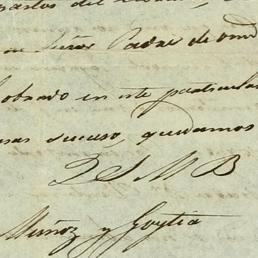 Señor Padre de vmd
obrado en este particular
suceso, quedamos
Q S M B
Muñoz y Goytia